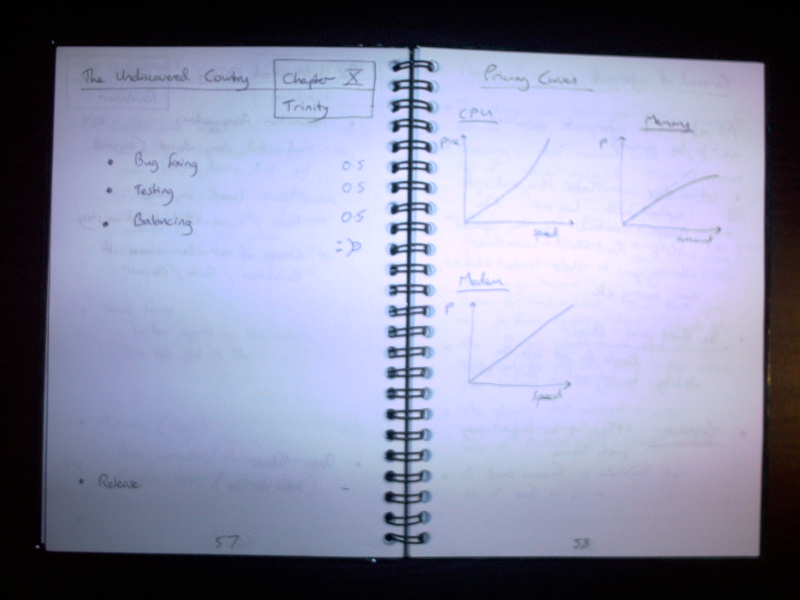 The Undiscovered Country
Chapter X
Trinity
• Bug fixing 0.5
• Testing 0.5
• Balancing 0.5
• Release -
57
Pricing Curves
CPU
Price
speed
Memory
P
amount
Modem
P
Speed
58